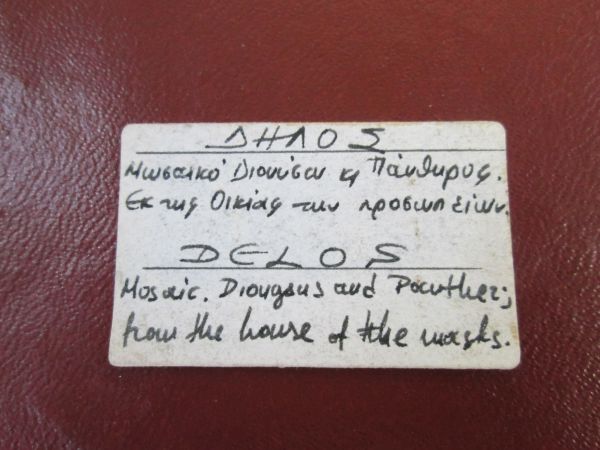 ΔΗΛΟΣ
Μωσαικό Διονύσου κ Πάνθηρος.
Εκ της Οικίας των προσωπείων.
DELOS
Mosaic. Dionysus and Panther;
from the house of the masks.